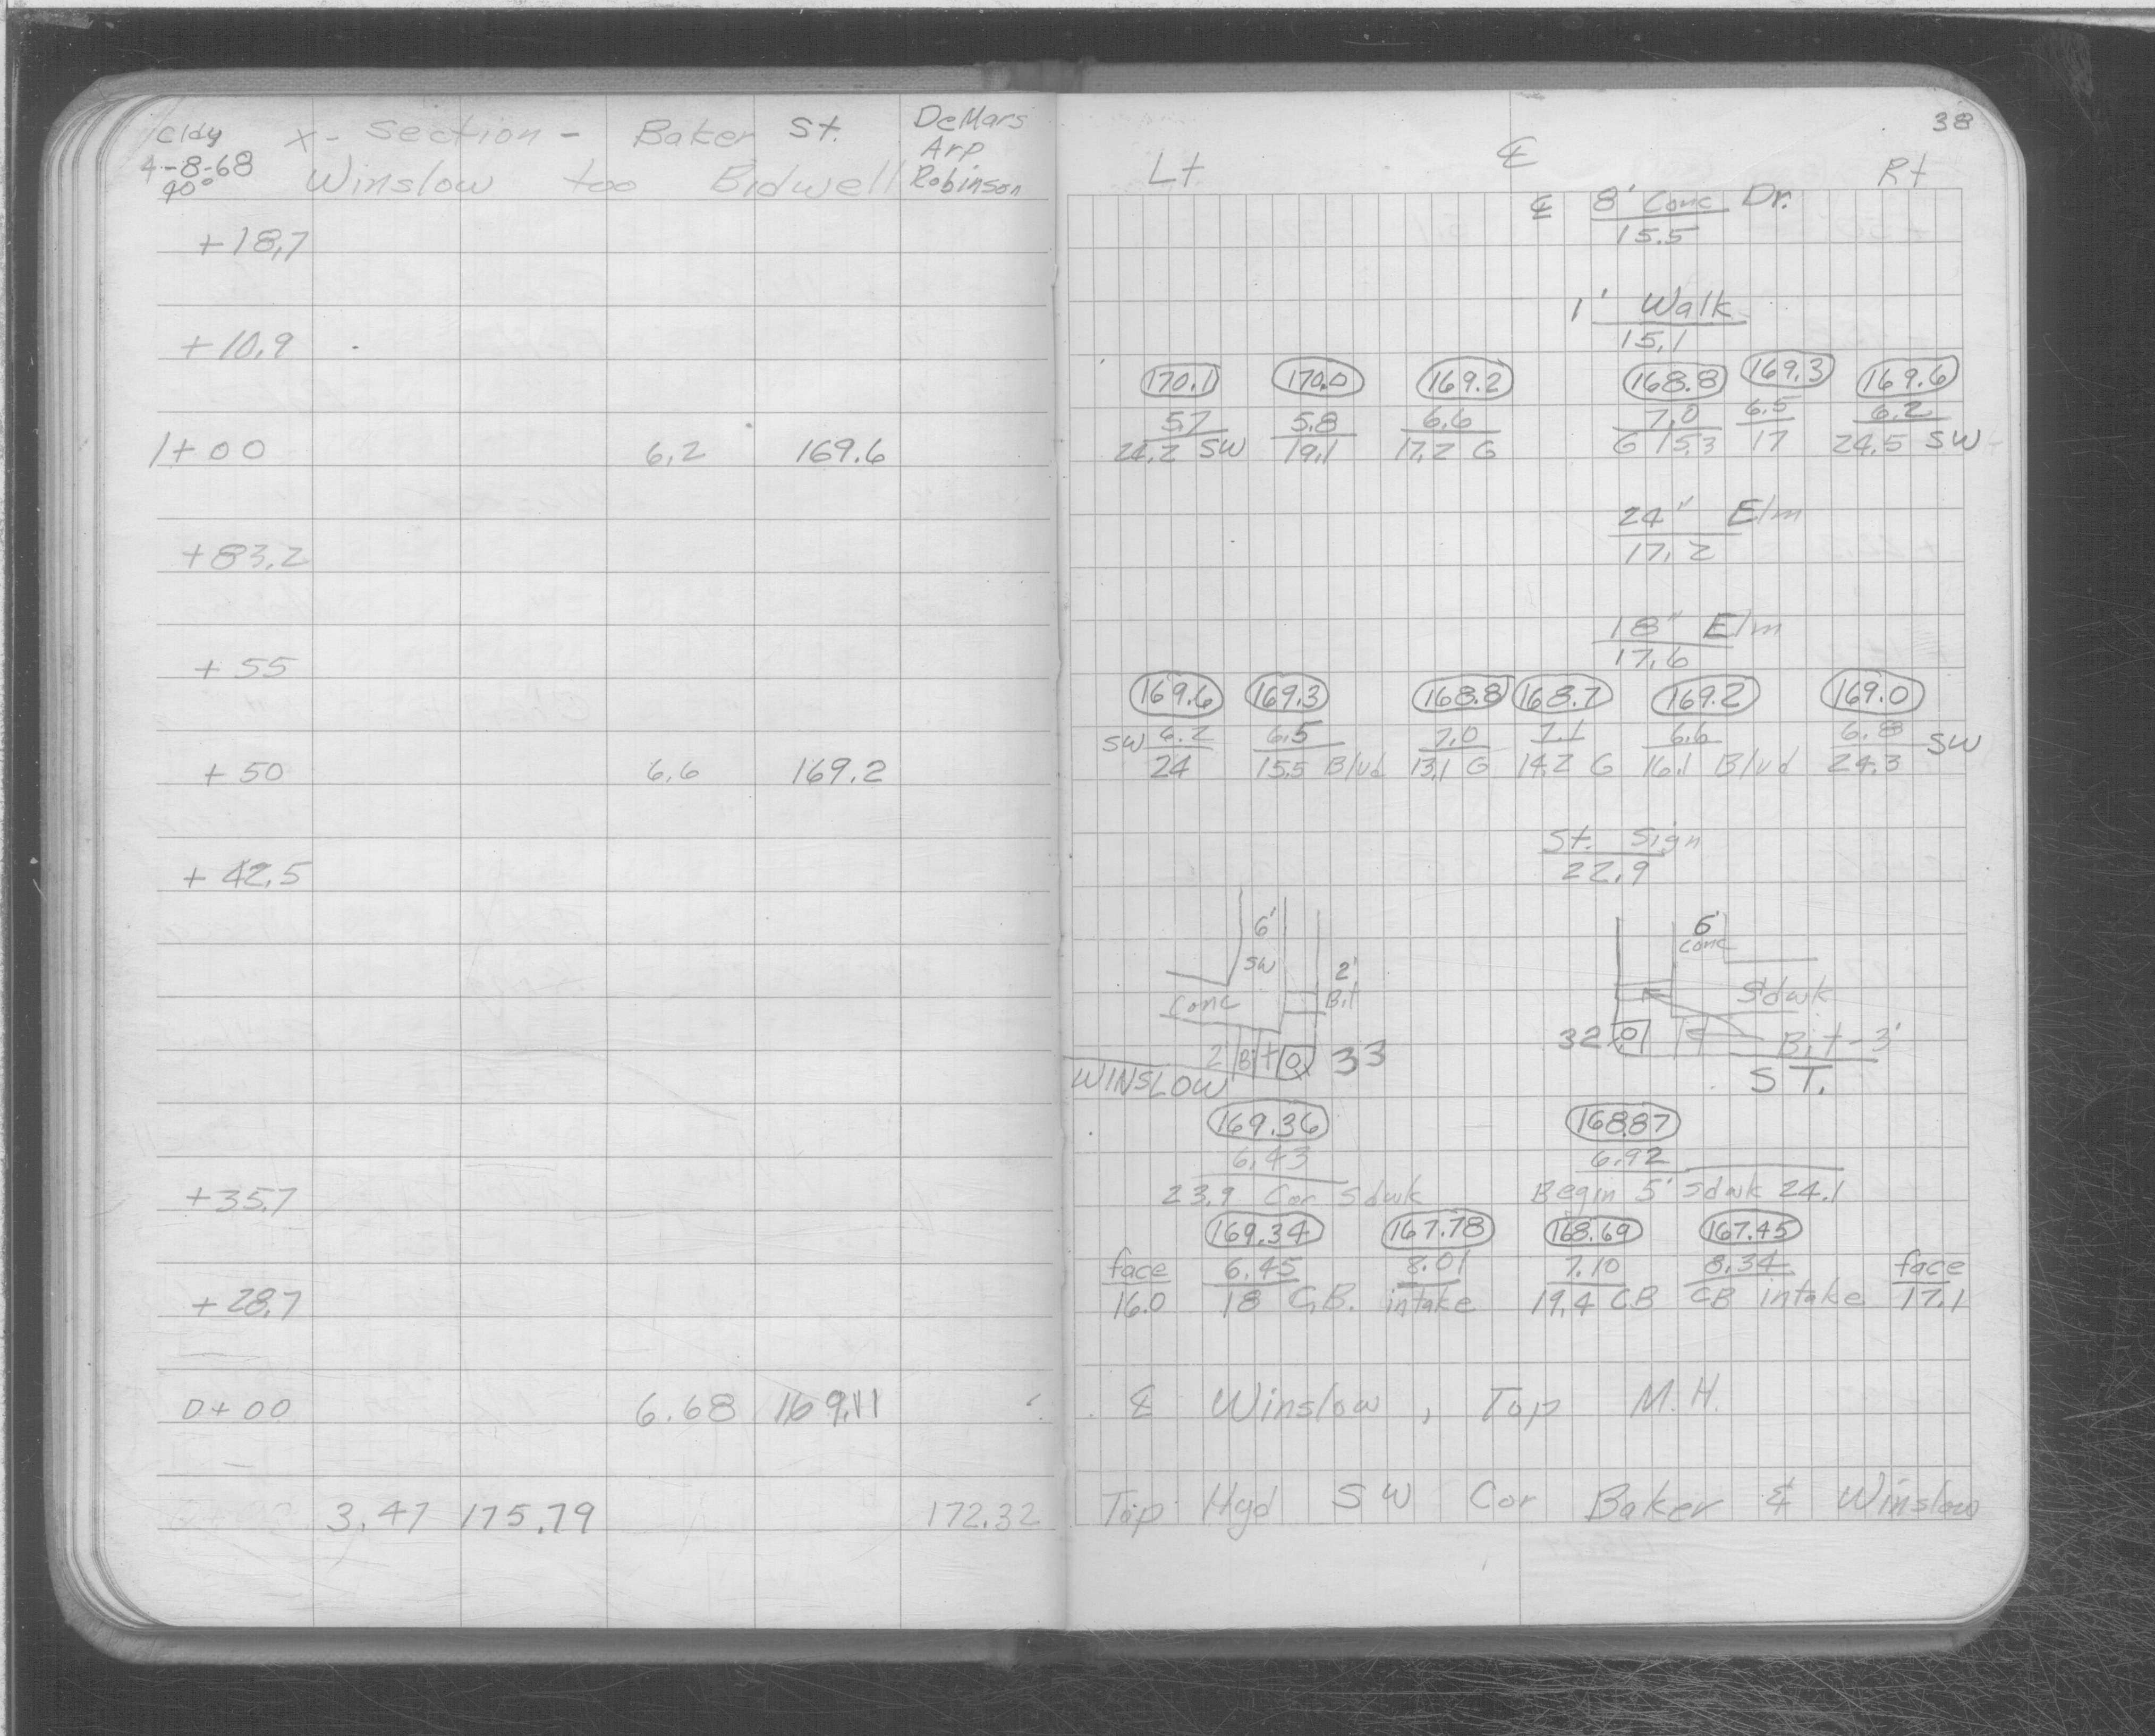 Cldy
4-8-68
40°
X- Section - Baker St.
Winslow too Bidwell
DeMars
Arp
Robinson
+18.7
+10.9
1+00 6.2 169.6
+83.2
+55
+50 6.6 169.2
+42.5
+35.7
+28.7
0+00 6.68 169.11
3.47 175.79 172.32
38
Lt ℄ Rt
℄ 8' Conc Dr.
15.5
1' Walk
15.1
170.1 170.0 169.2 168.8 169.3 169.6
5.7 5.8 6.6 7.0 6.5 6.2
24.2 SW 19.1 17.2 G G 15.3 17 24.5 SW
24" Elm
17.2
18" Elm
17.6
169.6 169.3 168.8 168.7 169.2 169.0
SW 6.2 6.5 7.0 7.1 6.6 6.8 SW
24 15.5 Blvd 13.1 G 14.2 G 16.1 Blvd 24.3
St. Sign
22.9
6'
SW
2'
Bit
Conc
2 Bit 33
WINSLOW
Conc
Sdwk
32
Bit-3'
ST.
169.36 168.87
6.43 6.92
23.9 Cor Sdwk Begin 5' Sdwk 24.1
169.34 167.78 168.69 167.45
face 6.45 8.01 7.10 8.34 face
16.0 18 C.B. intake 19.4 CB CB intake 17.1
℄ Winslow, Top M.H.
Top Hyd SW Cor Baker & Winslow